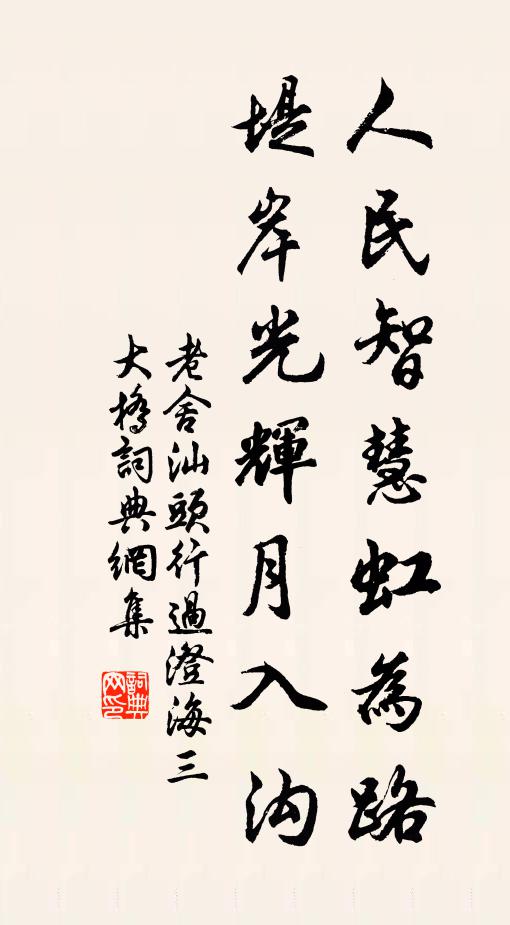 人民智慧虹為路
堤岸光輝月入沟
老舍汕頭行過澄海三
大橋詞典網集
詞典网印